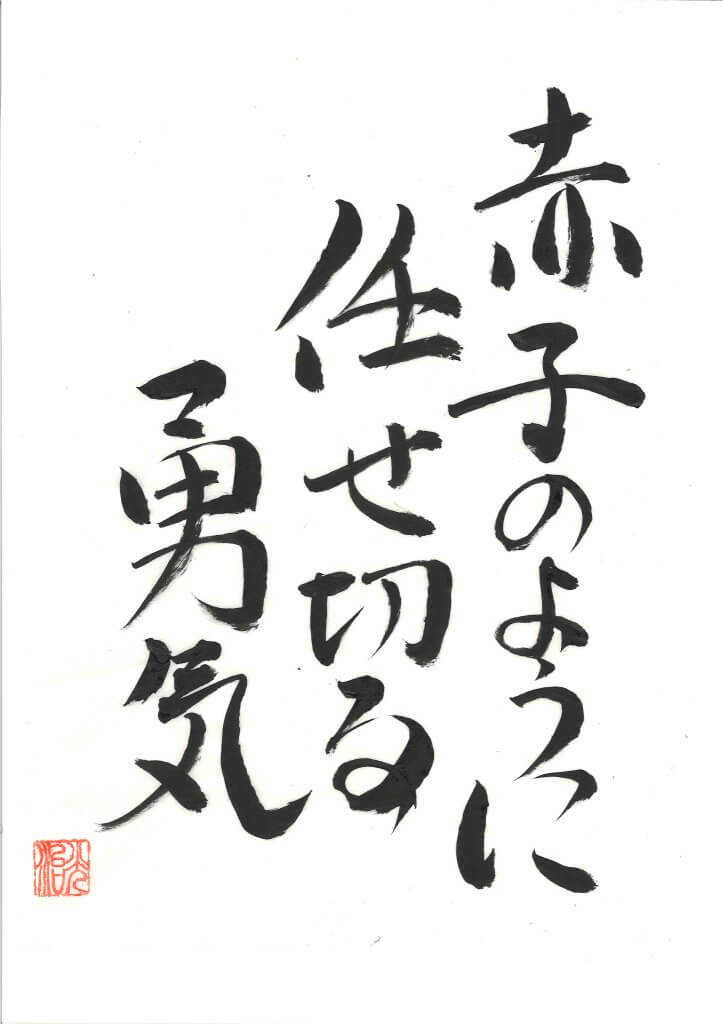 赤子のように
任せ切る
勇気